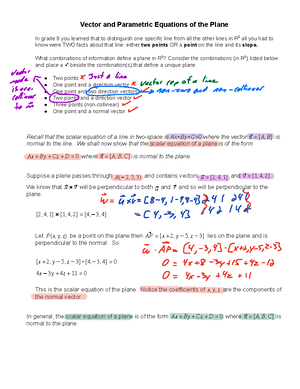 Vector and Parametric Equations of the Plane
In grade 9 you learned that to distinguish one specific line from all the other lines in R² all you had to
know were TWO facts about that line: either two points OR a point on the line and its slope.
What combinations of information define a plane in R³? Consider the combinations (in R³) listed below
and place a ✓ beside the combination(s) that define a unique plane.
• Two points × Just a line
• One point and a direction vector × vector rep of a line
• One point and two direction vectors → non-zero and non-collinear
• Two points and a direction vector
• Three points (non-collinear)
• One point and a normal vector
vector
node
is are
collinear
to
Recall that the scalar equation of a line in two-space is Ax+By+C=0 where the vector n⃗ = [A, B] is
normal to the line. We shall now show that the scalar equation of a plane is of the form
Ax + By + Cz + D = 0 where n⃗ = [A, B, C] is normal to the plane.
Suppose a plane passes through A(-2,5,3) and contains vectors u⃗ = [2,4,1], and v⃗ = [1,4,2].
We know that u⃗ × v⃗ will be perpendicular to both u⃗ and v⃗ and so will be perpendicular to the
plane.
n⃗ = u⃗×v⃗ = [8-4, 1-4, 8-4] 2 4 1 2 4
1 4 2 1 4
[2, 4, 1] × [1, 4, 2] = [4, −3, 4]
= [4, -3, 4]
Let P(x, y, z) be a point on the plane then AP⃗ = [x + 2, y − 5, z − 3] lies on the plane and is
perpendicular to the normal. So
n⃗ · AP⃗ = [4, -3, 4] · [x+2, y-5, z-3]
[x + 2, y − 5, z − 3] · [4, −3, 4] = 0
0 = 4x + 8 - 3y + 15 + 4z - 12
4x − 3y + 4z + 11 = 0
0 = 4x - 3y + 4z + 11
This is the scalar equation of the plane. Notice the coefficients of x, y, z are the components of
the normal vector.
In general, the scalar equation of a plane is of the form Ax + By + Cz + D = 0 where n⃗ = [A, B, C] is
normal to the plane.